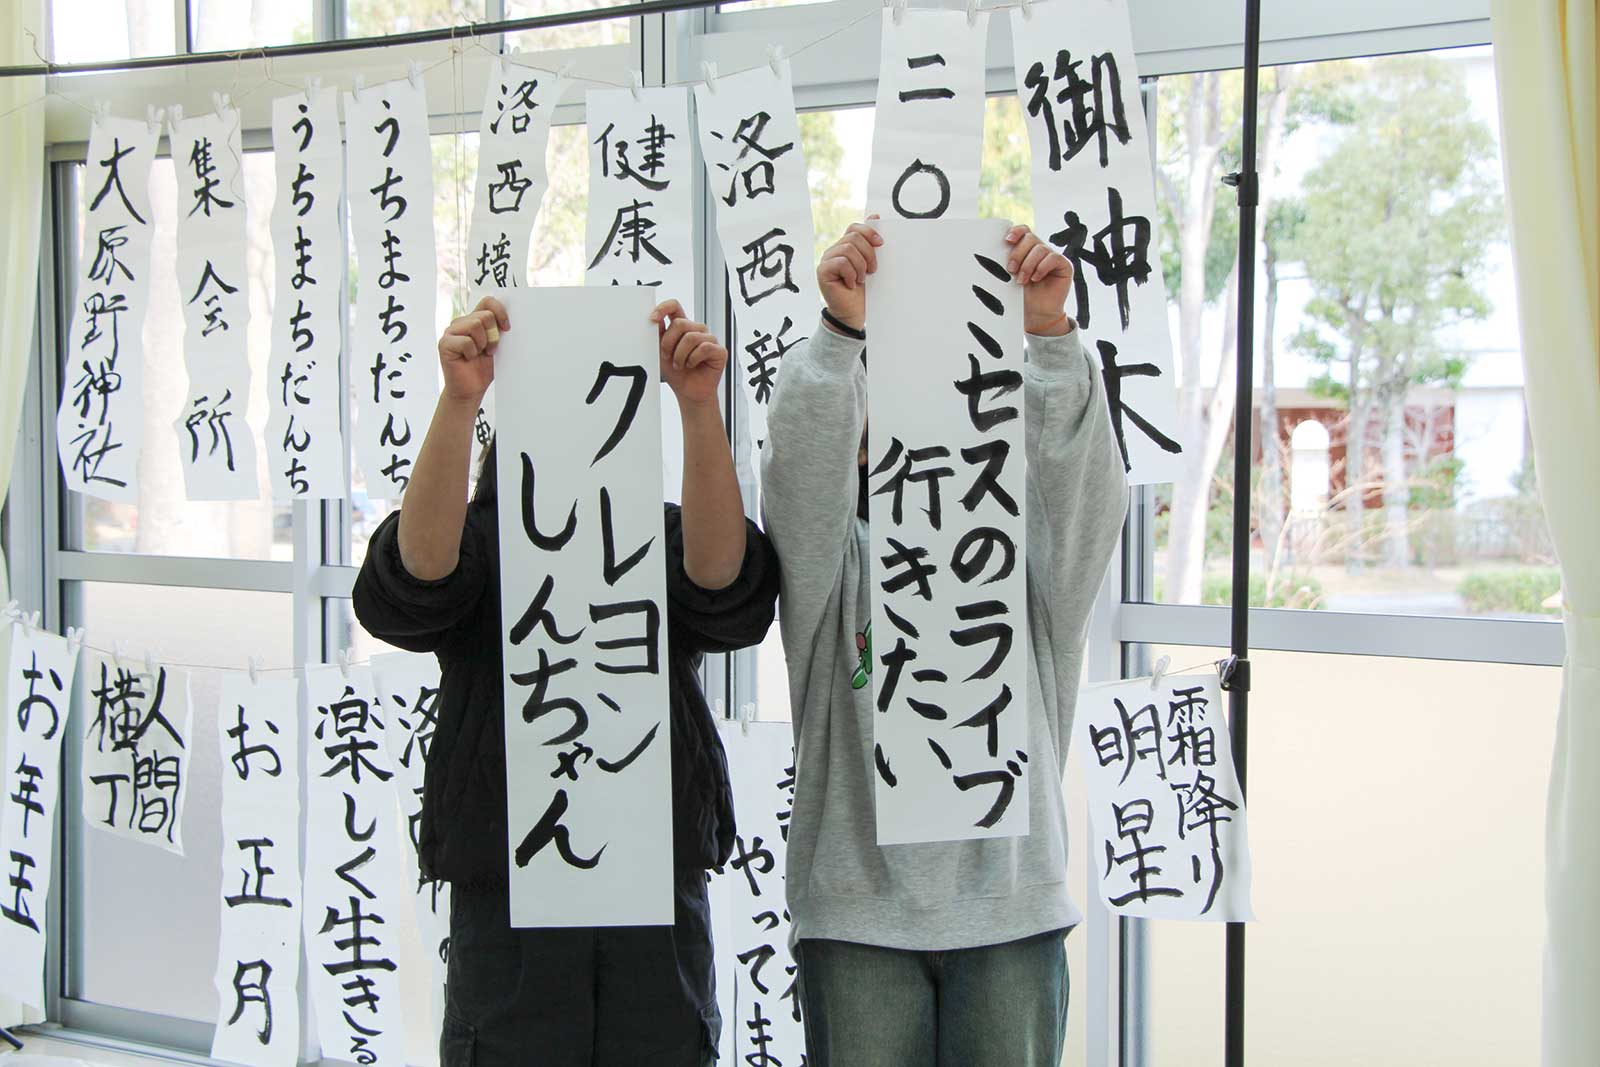 大原野神社
集会所
うちまちだんち
うちまちだんち
洛西境
健康
洛西新
二〇
御神木
クレヨン
しんちゃん
ミセスのライブ
行きたい
お年玉
人間
横丁
お正月
楽しく生きる
洛
やってま
霜降り
明星